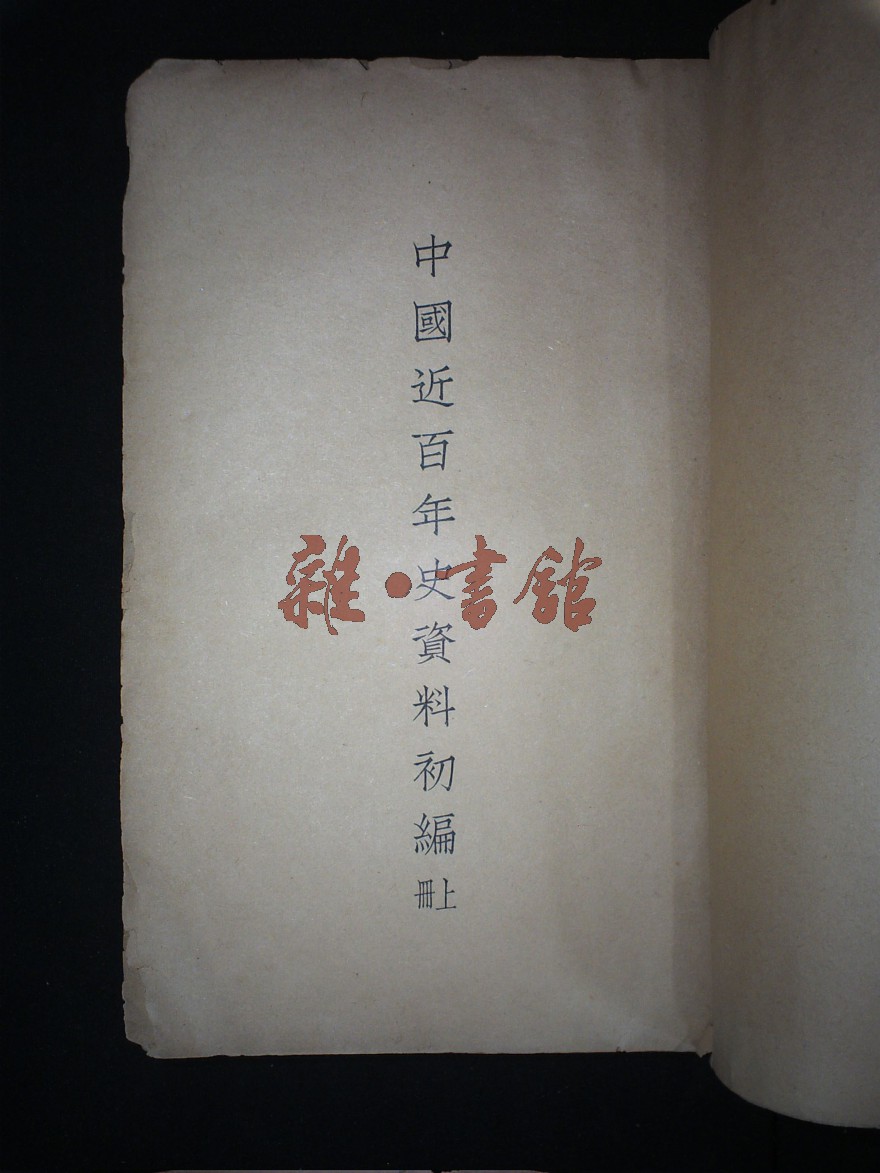 中國近百年史資料初編
上冊
雜·書館